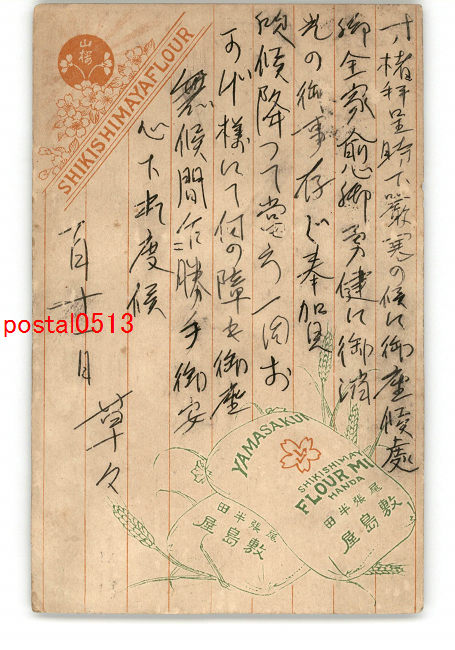 寸楮拝呈時下厳寒の候に御座候處
御全家愈御勇健に御消
光の御事存じ奉加賀
候降つて當方一同お
かげ様にて何の障も御座
無候間乍勝手御安
心下され度候
一月十一日
草々
山桜
SHIKISHIMAYAFLOUR
YAMASAKU
SHIKISHIMAY
FLOUR MI
HANDA
尾張半田
敷島屋
尾張半田
敷島屋
postal0513